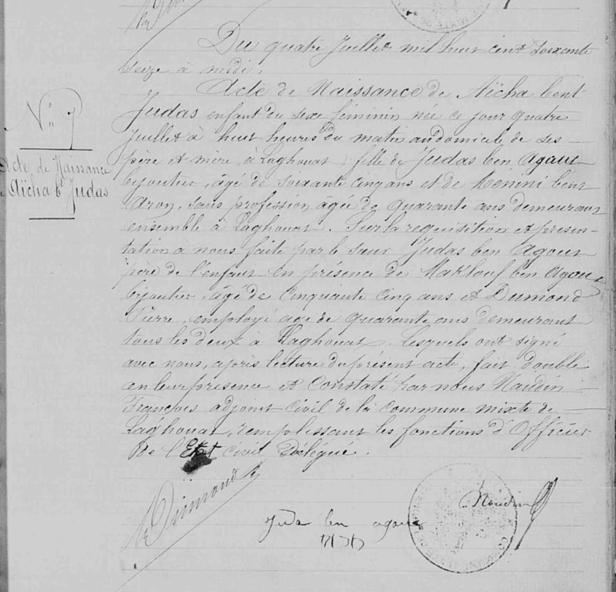 Du quatre Juillet mil huit cent soixante
seize à midi.
Acte de Naissance de Aicha bent
Judas enfant du sexe féminin née ce jour quatre
Juillet à huit heures du matin au domicile de ses
père et mère, à Laghouat, fille de Judas ben Agour
bijoutier, âgé de soixante cinq ans et de Memini bent
Aron, sans profession âgée de quarante ans demeurant
ensemble à Laghouat. Sur la réquisition et présen-
tation à nous faite par le sieur Judas ben Agour
père de l'enfant en présence de ben Agour
bijoutier, âgé de cinquante cinq ans et Dumond
Pierre, employé agé de quarante ans demeurant
tous les deux à Laghouat, lesquels ont signé
avec nous, après lecture du présent acte, fait double
en leur présence et constaté par nous Naudin
François adjoint civil de la commune mixte de
Laghouat, remplissant les fonctions d'Officier
de l'Etat civil Délégué.
N° 9
Acte de Naissance
de Aïcha bt Judas
Dumond P.
Juda ben agour
Naudin